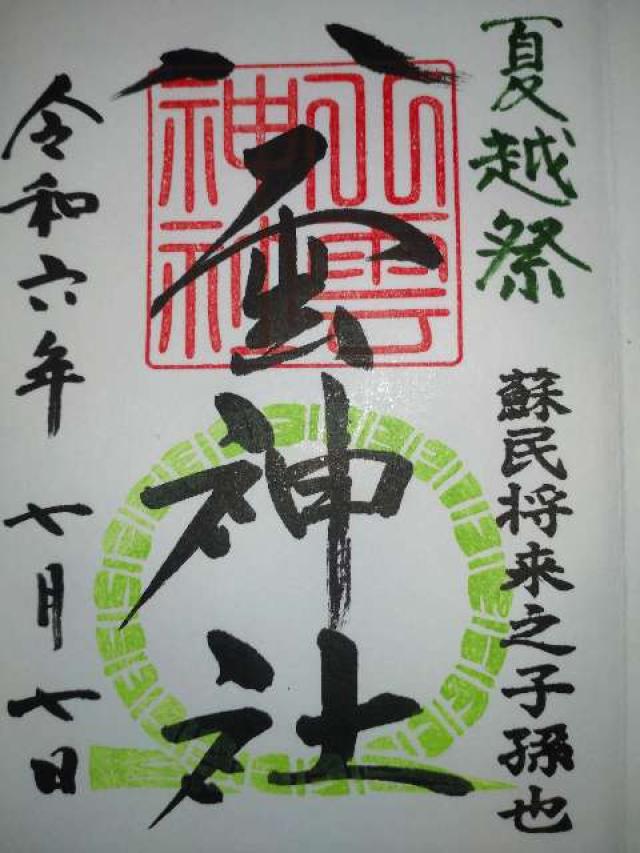 夏越祭
蘇民将来之子孫也
八雲神社
八雲
神社
令和六年 七月七日